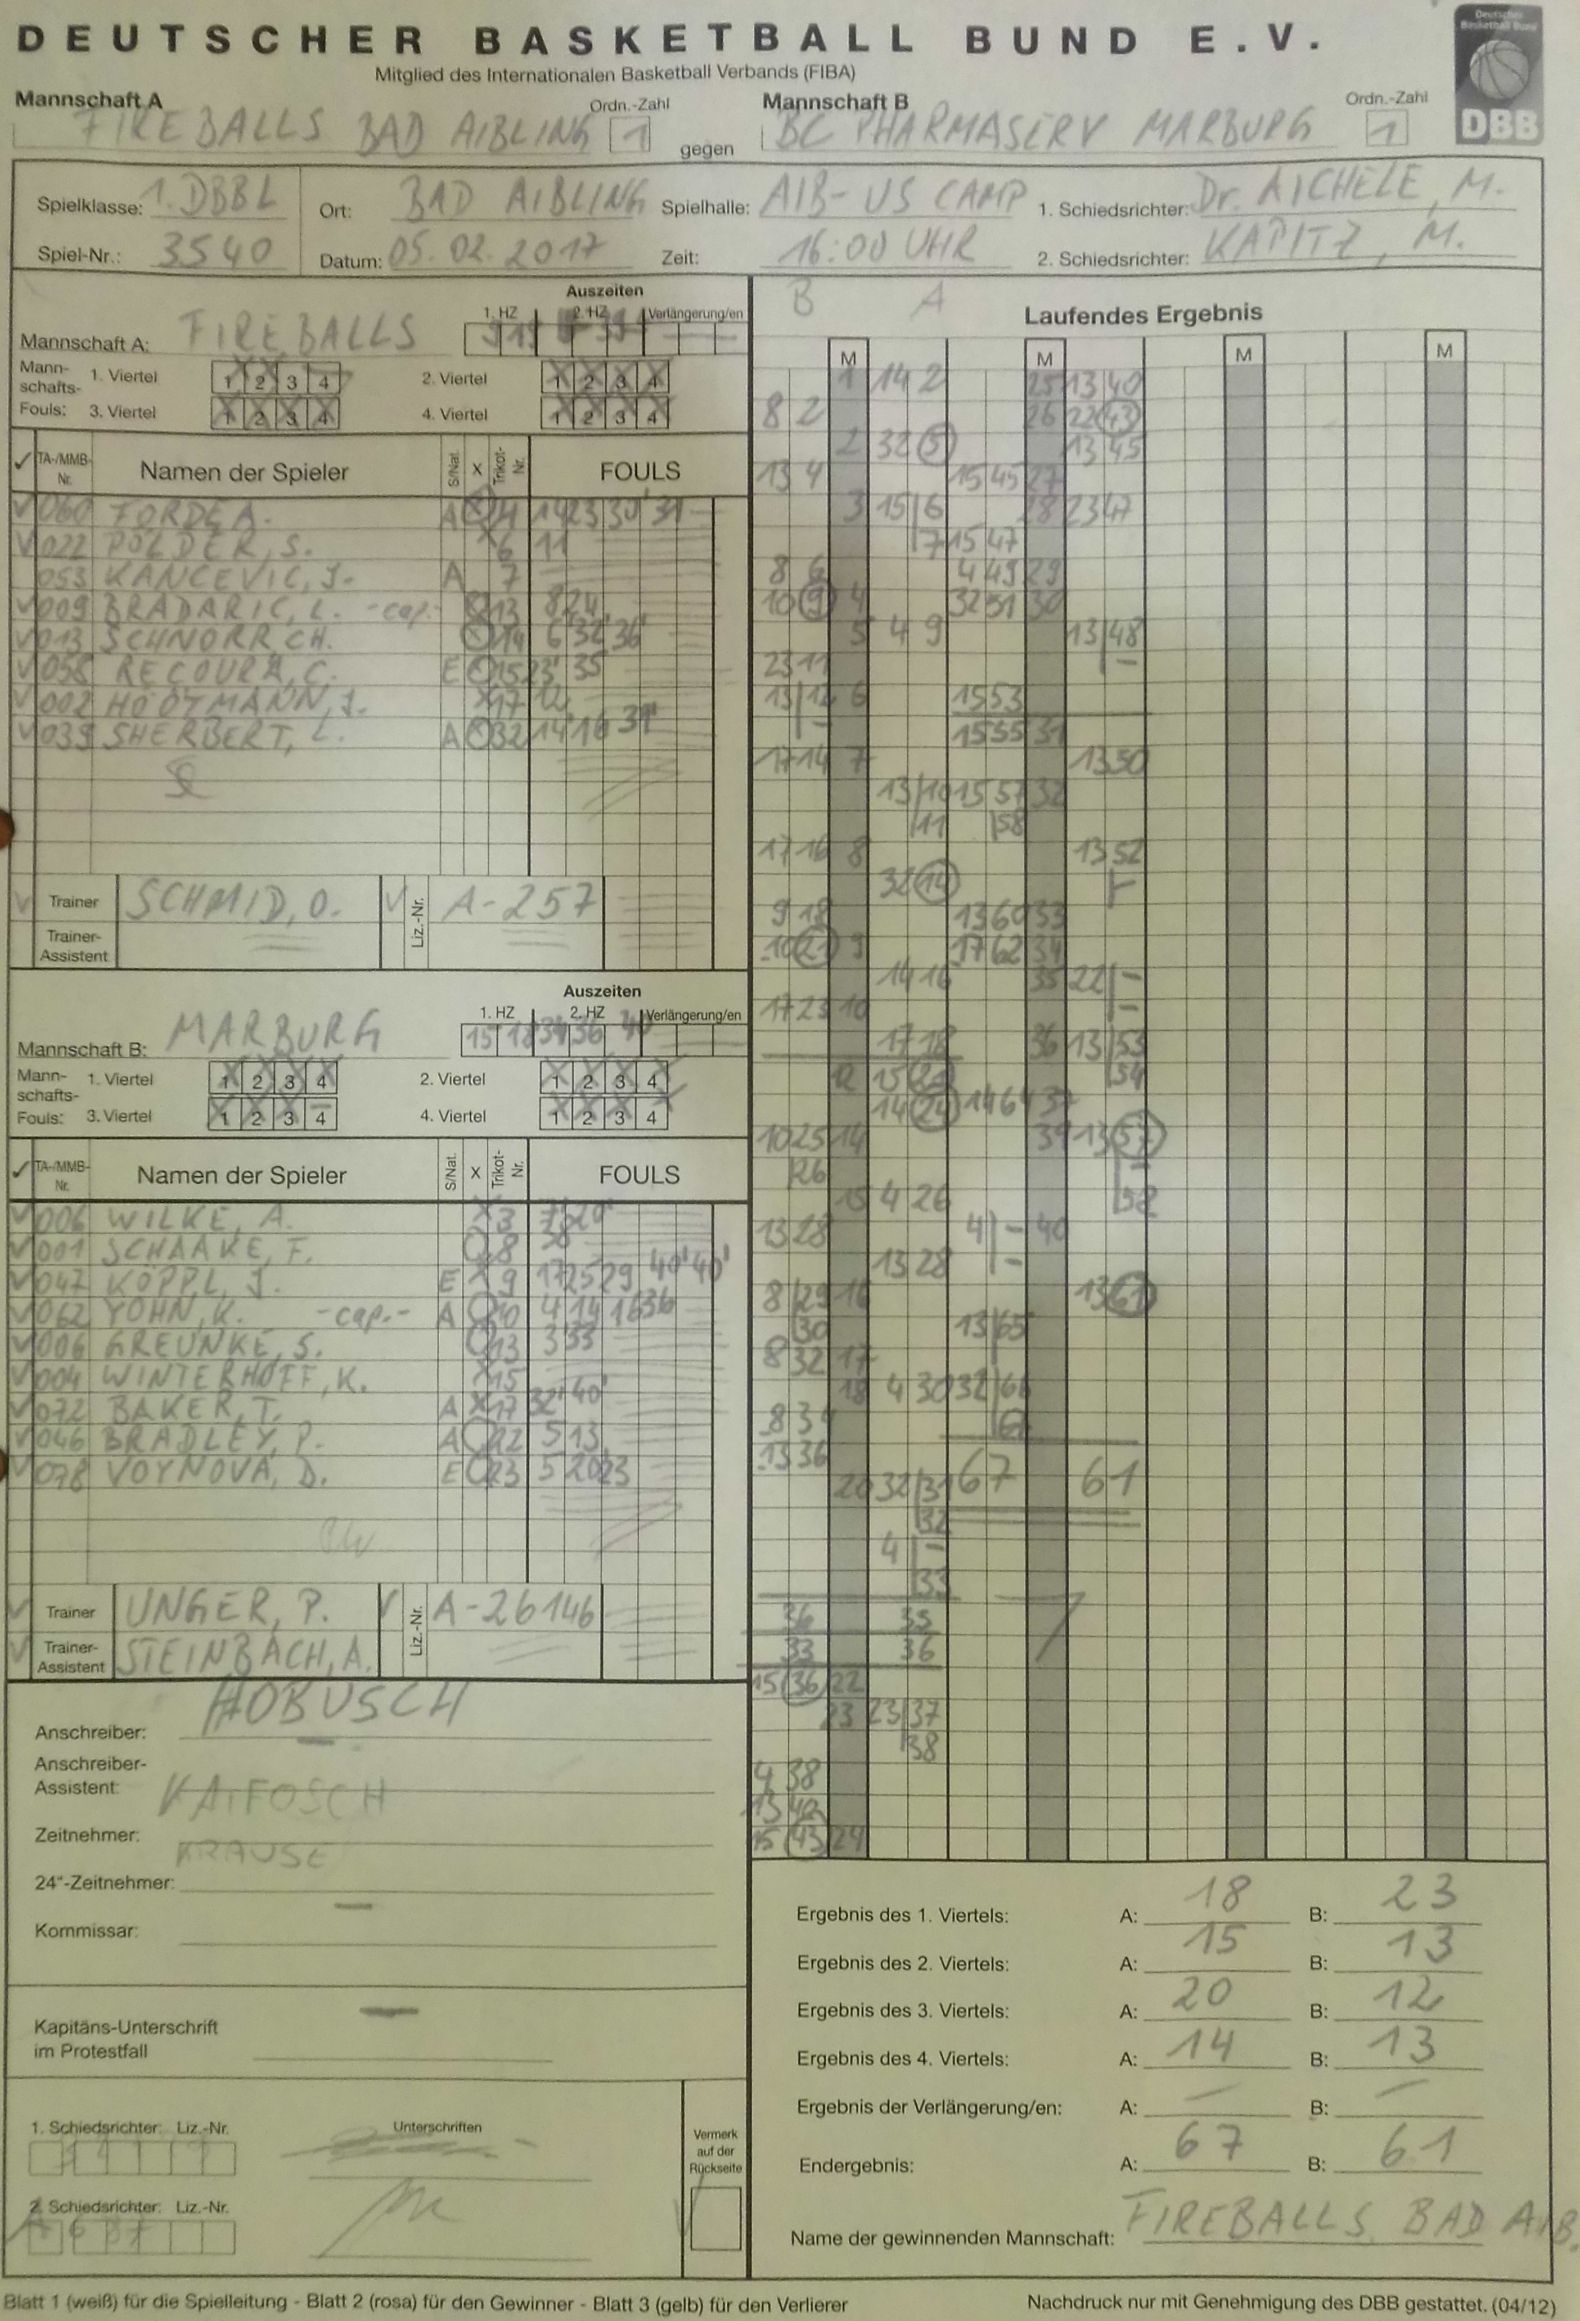 DEUTSCHER BASKETBALL BUND E.V.
Mitglied des Internationalen Basketball Verbands (FIBA)
Deutscher Basketball Bund
DBB
Mannschaft A
FIREBALLS BAD AIBLING
Ordn.-Zahl
1
gegen
Mannschaft B
BC PHARMASERV MARBURG
Ordn.-Zahl
1
Spielklasse: 1. DBBL
Ort: BAD AIBLING
Spielhalle: AIB-US CAMP
1. Schiedsrichter: Dr. AICHELE, M.
Spiel-Nr.: 3540
Datum: 05.02.2017
Zeit: 16:00 UHR
2. Schiedsrichter: KAPITZ, M.
Auszeiten
1. HZ 2. HZ Verlängerung/en
Mannschaft A: FIREBALLS
Mannschafts-Fouls:
1. Viertel 1 2 3 4
2. Viertel 1 2 3 4
3. Viertel 1 2 3 4
4. Viertel 1 2 3 4
TA-/MMB-Nr. Namen der Spieler S/Nat. X Trikot-Nr. FOULS
060 FORDE A. A 4 14 23 30' 31
022 PÖLDER, S. 6 11
053 KANCEVIC, J. A 7
009 BRADARIC, L. -cap.- 13 8 24
013 SCHNORR, CH. 14 6 32 36'
058 RECOURA, C. E 15 23' 35
002 17 12
039 SHERBERT, L. A 32 14 16
Trainer SCHMID, O. Liz.-Nr. A-257
Trainer-Assistent
Auszeiten
1. HZ 2. HZ Verlängerung/en
15 18 34 36 40
Mannschaft B: MARBURG
Mannschafts-Fouls:
1. Viertel 1 2 3 4
2. Viertel 1 2 3 4
3. Viertel 1 2 3 4
4. Viertel 1 2 3 4
TA-/MMB-Nr. Namen der Spieler S/Nat. X Trikot-Nr. FOULS
006 WILKE, A. 3
001 SCHAAKE, F. 8 38
047 KÖPPL, J. E 9 17 25 29 40' 40'
062 YOHN, K. -cap.- A 10 4 14 16 36
006 GREUNKE, S. 13 3 33
004 WINTERHOFF, K. 15
072 BAKER, T. A 17 32' 40'
046 BRADLEY, P. A 22 5 13
078 VOYNOVA, D. E 23 5 20 23
Trainer UNGER, P. Liz.-Nr. A-26146
Trainer-Assistent STEINBACH, A.
Anschreiber: HOBUSCH
Anschreiber-Assistent: KAIFOSCH
Zeitnehmer: KRAUSE
24"-Zeitnehmer:
Kommissar:
Kapitäns-Unterschrift im Protestfall
1. Schiedsrichter: Liz.-Nr.
Unterschriften
2. Schiedsrichter: Liz.-Nr.
Vermerk auf der Rückseite
B A
Laufendes Ergebnis
M M M M
1 14 2 25 13 40
8 2 26 22 43
2 32 5 13 45
13 4 15 45 27
3 15 6 28 23 47
7 15 47
8 6 4 49 29
10 9 4 32 51 30
5 4 9 13 48
23 11
13 12 6 15 53
15 55 31
17 14 7 13 50
13 10 15 57 32
11 58
17 16 8 13 52
32 14
9 18 13 60 33
10 21 9 17 62 34
14 16 35 22
17 23 10
17 18 36 13 53
12 15 21 54
14 24 14 64 37
10 25 14 39 13 57
26
15 4 26 58
13 28 4 40
13 28
8 29 16 13 61
30 13 65
8 32 17
18 4 30 32 66
8 34 67
13 36
20 32 31 67 61
32
4
33
36 35
33 36
15 36 22
23 23 37
38
4 38
13 40
15 43 24
Ergebnis des 1. Viertels: A: 18 B: 23
Ergebnis des 2. Viertels: A: 15 B: 13
Ergebnis des 3. Viertels: A: 20 B: 12
Ergebnis des 4. Viertels: A: 14 B: 13
Ergebnis der Verlängerung/en: A: — B: —
Endergebnis: A: 67 B: 61
Name der gewinnenden Mannschaft: FIREBALLS BAD AIB.
Blatt 1 (weiß) für die Spielleitung - Blatt 2 (rosa) für den Gewinner - Blatt 3 (gelb) für den Verlierer
Nachdruck nur mit Genehmigung des DBB gestattet. (04/12)